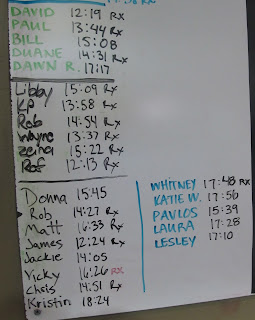 DAVID 12:19 RX
PAUL 13:44 RX
BILL 15:08
DUANE 14:31 RX
DAWN R. 17:17
Libby 15:09 RX
KP 13:58 RX
Rob 14:54 RX
Wayne 13:37 RX
Zeina 15:22 RX
Raf 12:13 RX
Donna 15:45
Rob 14:27 Rx
Matt 16:33 Rx
James 12:24 Rx
Jackie 14:05
Vicky 16:26 RX
Chris 14:51 Rx
Kristin 18:24
WHITNEY 17:48 RX
KATIE W. 17:56
PAVLOS 15:39
LAURA 17:28
LESLEY 17:10